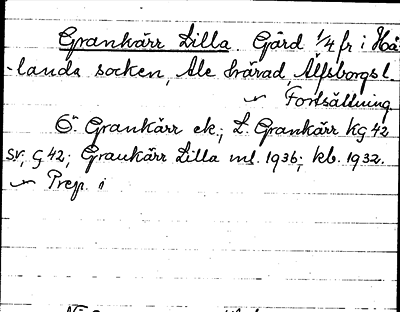 Grankärr Lilla. Gård 1/4 fr i Hå-
landa socken, Ale härad, Älfsborgs l.
Fortsättning.
Ö. Grankärr ek.; L. Grankärr kg 42
sv, g 42; Grankärr Lilla ml. 1936; kb. 1932.
Prep. i